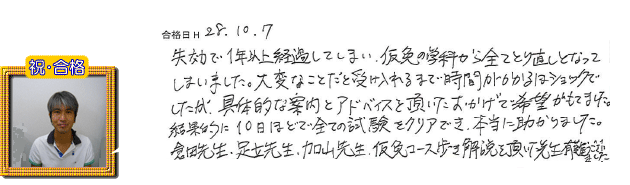 合格日 H 28.10.7
祝・合格
失効で1年以上経過してしまい、仮免の学科から全てとり直しとなって
しまいました。大変なことだと受け入れるまで時間がかかるほどショックで
したが、具体的な案内とアドバイスを頂いたおかげで希望がもてました。
結果的に10日ほどで全ての試験をクリアでき、本当に助かりました。
倉田先生、足立先生、加山先生、仮免コース歩き解説を頂いた先生